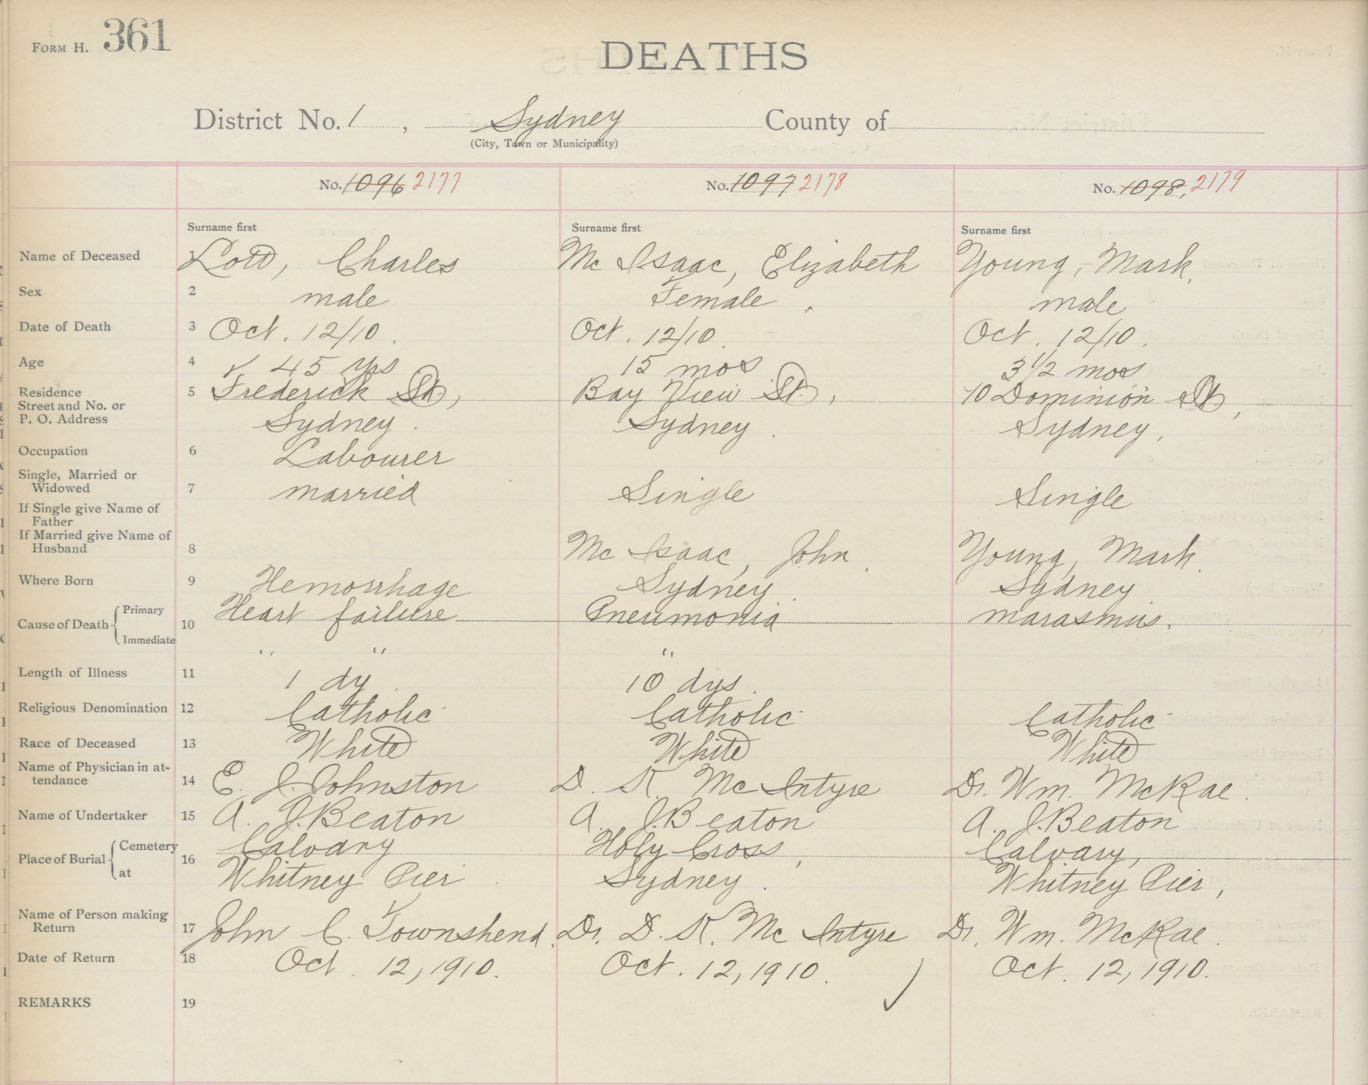 FORM H. 361
DEATHS
District No. 1, Sydney County of
(City, Town or Municipality)
No. 1096 2177 No. 1097 2178 No. 1098, 2179
Surname first Surname first Surname first
Name of Deceased 1 Lott, Charles Mc Isaac, Elizabeth Young, Mark
Sex 2 male Female male
Date of Death 3 Oct. 12/10. Oct. 12/10. Oct. 12/10.
Age 4 45 yrs 15 mos 3 1/2 mos
Residence 5 Frederick St, Bay View St, 70 Dominion St,
Street and No. or
P. O. Address Sydney. Sydney. Sydney,
Occupation 6 Labourer
Single, Married or
Widowed 7 married Single Single
If Single give Name of
Father
If Married give Name of
Husband 8 Mc Isaac, John. Young, Mark.
Where Born 9 Hemorrhage Sydney. Sydney
Cause of Death { Primary Immediate 10 Heart failure Pneumonia marasmus.
" " "
Length of Illness 11 1 dy. 10 dys.
Religious Denomination 12 Catholic Catholic Catholic
Race of Deceased 13 White White White
Name of Physician in at-
tendance 14 E. J. Johnston D. K. Mc Intyre Dr. Wm. McRae.
Name of Undertaker 15 A. J. Beaton A. J. Beaton A. J. Beaton
Place of Burial { Cemetery at 16 Calvary Holy Cross, Calvary,
Whitney Pier Sydney. Whitney Pier,
Name of Person making
Return 17 John C. Townshend. Dr. D. K. Mc Intyre Dr. Wm. McRae.
Date of Return 18 Oct. 12, 1910. Oct. 12, 1910. Oct. 12, 1910.
REMARKS 19